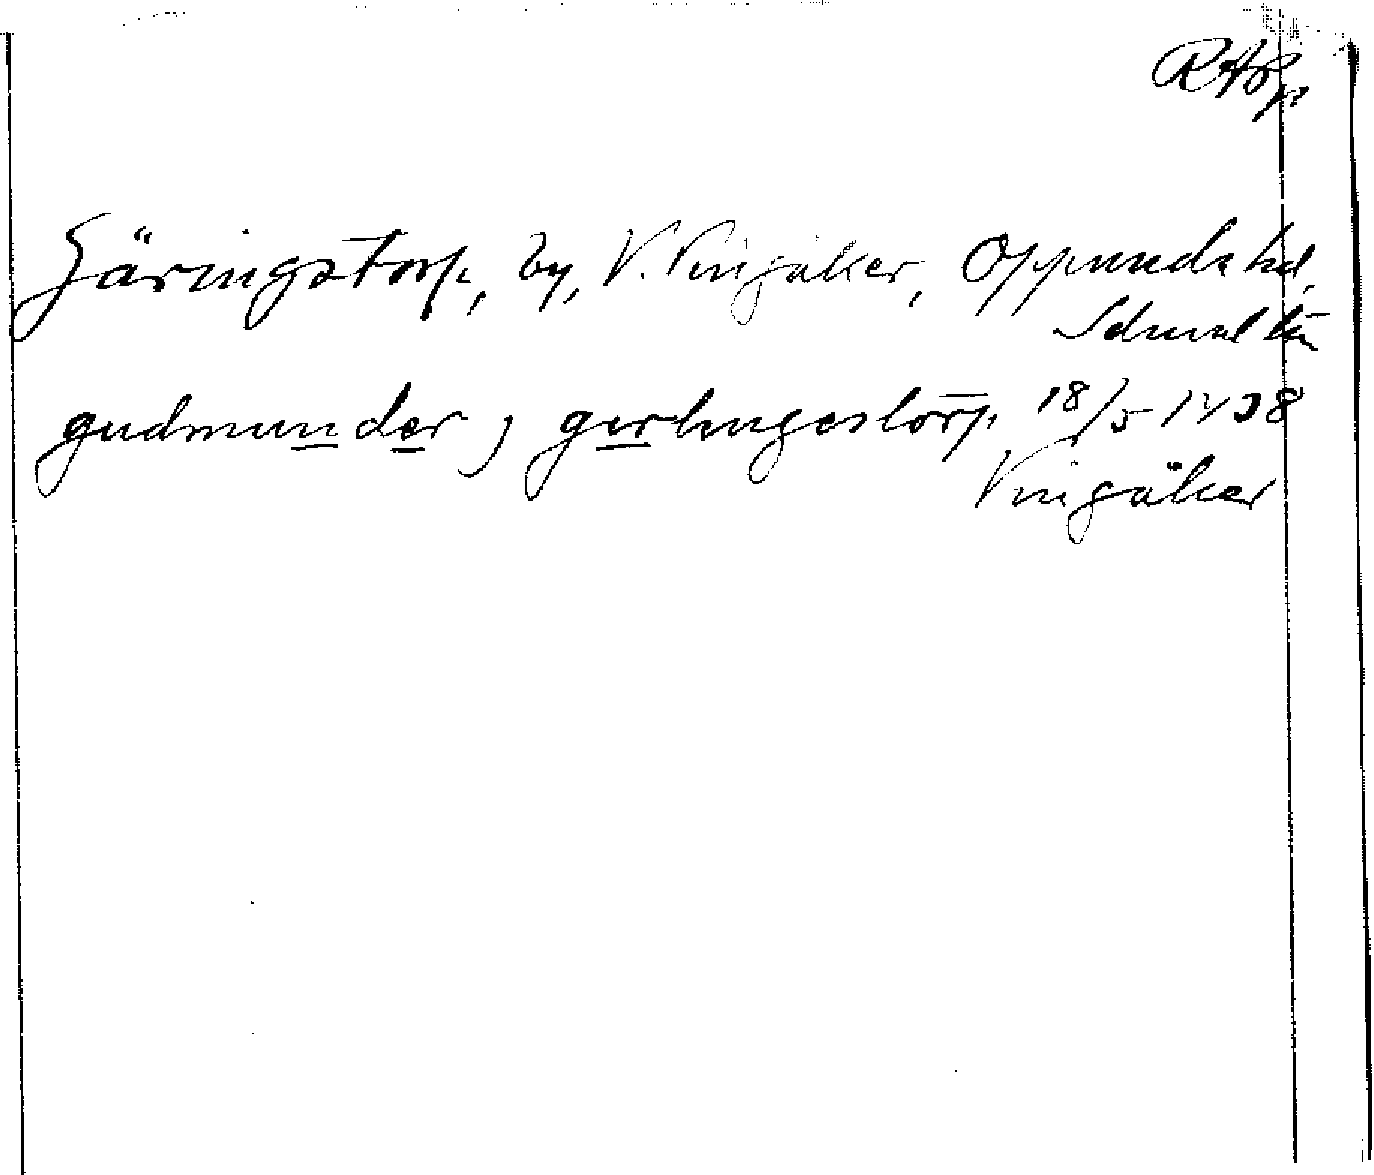 RAp
Gäringstorp, by, V. Vingåker, Oppunda hd,
Söderml län
gudmunder j gerlungestorp 18/5 1438
Vingåker